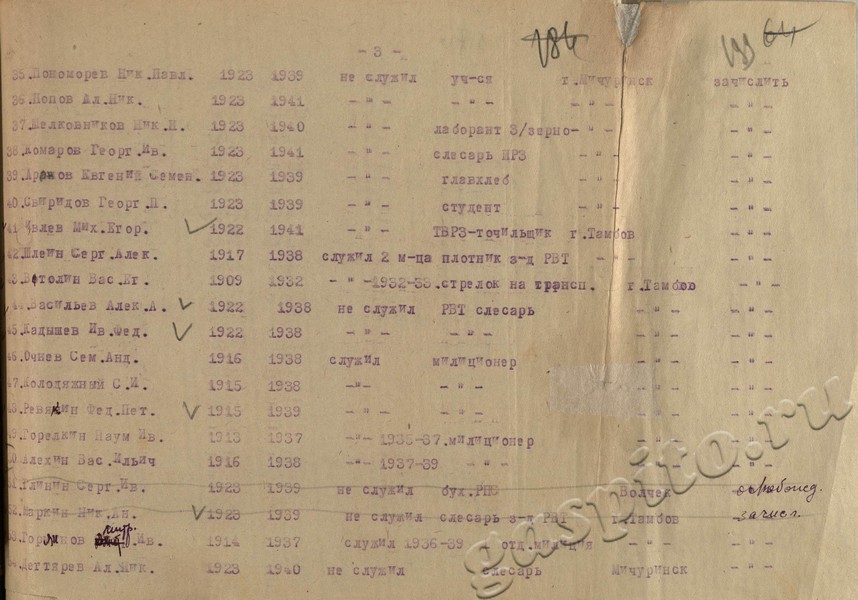 - 3 -
184
199 64
35.Пономорев Ник.Павл. 1923 1939 не служил уч-ся г.Мичуринск зачислить
36.Попов Ал.Ник. 1923 1941 -"- -"- -"- -"-
37.Шелковников Ник.П. 1923 1940 -"- лаборант З/зерно- -"- -"-
38.Комаров Георг.Ив. 1923 1941 -"- слесарь ПРЗ -"- -"-
39. Евгений Семен. 1923 1939 -"- главхлеб -"- -"-
40.Свиридов Георг.П. 1923 1939 -"- студент -"- -"-
41. Мих.Егор. 1922 1941 -"- ТВРЗ-точильщик г.Тамбов -"-
42.Шлеин Серг.Алек. 1917 1938 служил 2 м-ца плотник з-д РВТ -"- -"-
43. Вас.Ег. 1909 1932 -"-1932-33.стрелок на трансп. г.Тамбов -"-
44.Васильев Алек.А. 1922 1938 не служил РВТ слесарь -"- -"-
45.Кадышев Ив.Фед. 1922 1938 -"- -"- -"- -"-
46.Очнев Сем.Анд. 1916 1938 служил милиционер -"- -"-
47.Колодяжный С.И. 1915 1938 -"- -"- -"- -"-
48.Ревякин Фед.Пет. 1915 1939 -"- -"- -"- -"-
49.Горелкин Наум Ив. 1913 1937 -"-1935-37.милиционер -"- -"-
50.Алехин Вас.Ильич 1916 1938 -"- 1937-39 -"- -"- -"-
51.Глинин Серг.Ив. 1923 1939 не служил бух. Волчек
52.Маркин Ник.Ан. 1923 1939 не служил слесарь з-д РВТ г.Тамбов зачисл.
53. Ив. 1914 1937 служил 1936-39 отд.милиция -"- -"-
54.Дегтярев Ал.Мик. 1923 1940 не служил слесарь Мичуринск -"-
gaspito.ru